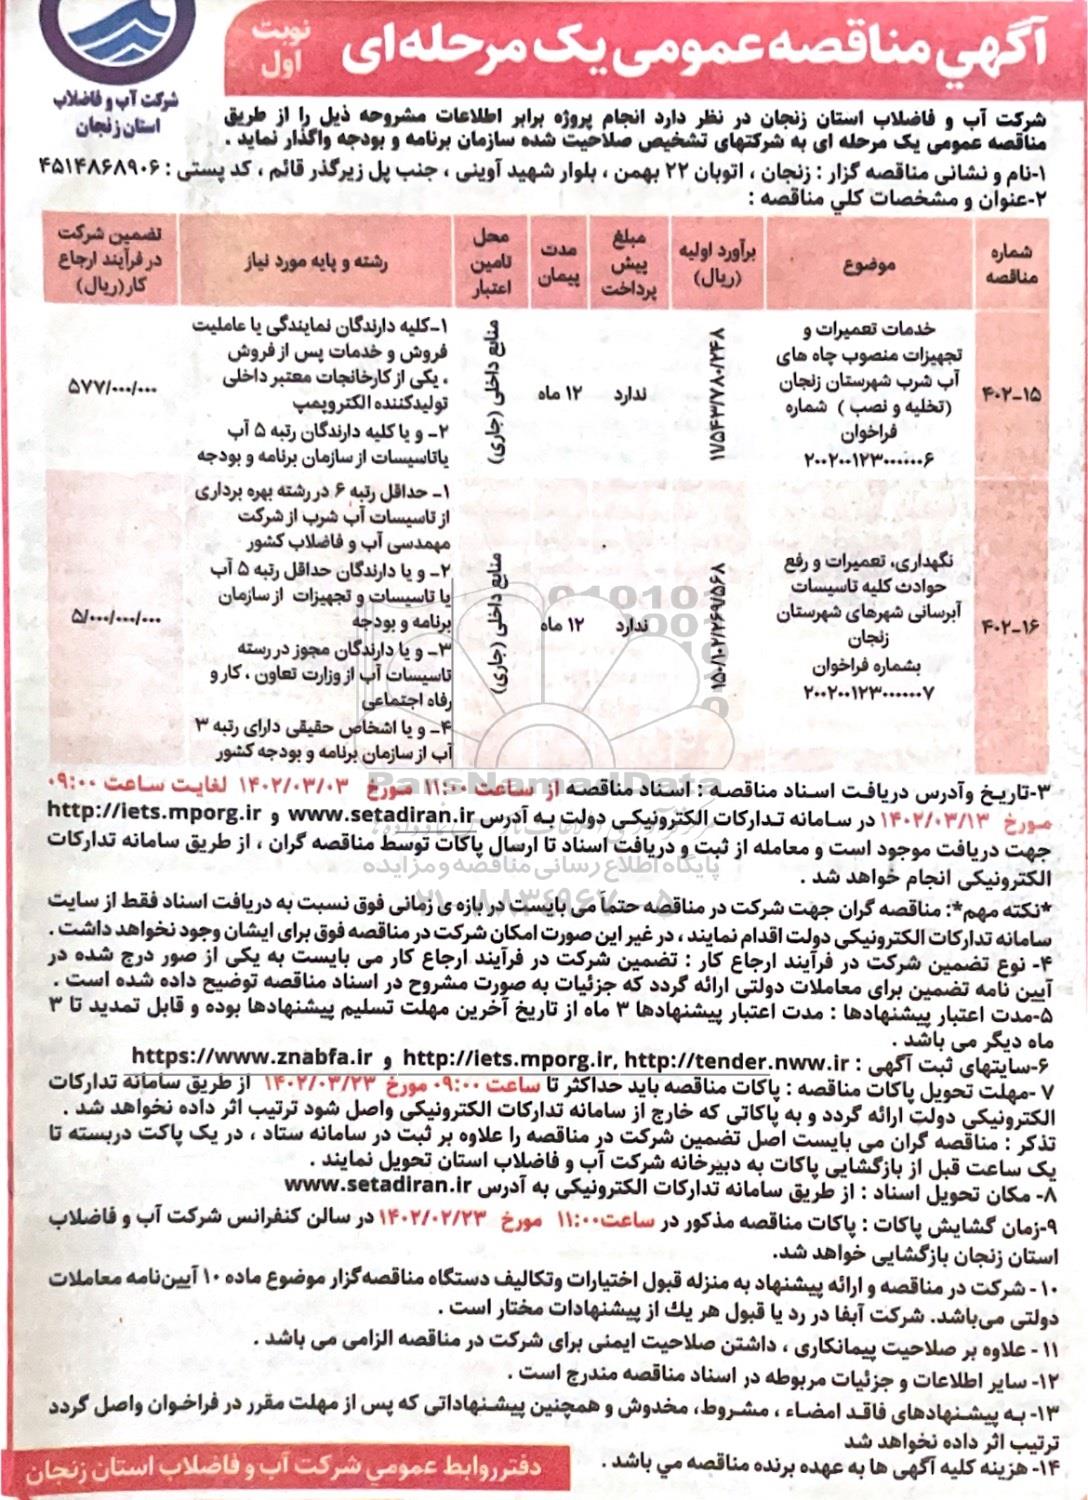 آگهي مناقصه عمومی یک مرحله‌ای
نوبت اول
شرکت آب و فاضلاب
استان زنجان
شرکت آب و فاضلاب استان زنجان در نظر دارد انجام پروژه برابر اطلاعات مشروحه ذیل را از طریق
مناقصه عمومی یک مرحله ای به شرکتهای تشخیص صلاحیت شده سازمان برنامه و بودجه واگذار نماید .
۱-نام و نشانی مناقصه گزار : زنجان ، اتوبان ۲۲ بهمن ، بلوار شهید آوینی ، جنب پل زیرگذر قائم ، کد پستی : ۴۵۱۴۸۶۸۹۰۶
۲-عنوان و مشخصات کلي مناقصه :
شماره مناقصه
موضوع
برآورد اولیه (ریال)
مبلغ پیش پرداخت
مدت پیمان
محل تامین اعتبار
رشته و پایه مورد نیاز
تضمین شرکت در فرآیند ارجاع کار(ریال)
۴۰۲-۱۵
خدمات تعمیرات و
تجهیزات منصوب چاه های
آب شرب شهرستان زنجان
(تخلیه و نصب ) شماره
فراخوان
۲۰۰۲۰۰۱۲۳۰۰۰۰۰۰۶
۱۱/۵۴۳/۷۸۰/۲۴۸
ندارد
۱۲ ماه
منابع داخلی (جاری)
۱-کلیه دارندگان نمایندگی یا عاملیت
فروش و خدمات پس از فروش
، یکی از کارخانجات معتبر داخلی
تولیدکننده الکتروپمپ
۲- و یا کلیه دارندگان رتبه ۵ آب
یاتاسیسات از سازمان برنامه و بودجه
۵۷۷/۰۰۰/۰۰۰
۴۰۲-۱۶
نگهداری، تعمیرات و رفع
حوادث کلیه تاسیسات
آبرسانی شهرهای شهرستان
زنجان
بشماره فراخوان
۲۰۰۲۰۰۱۲۳۰۰۰۰۰۰۷
۱۵۰/۱۰۲/۲۶۹/۵۶۸
ندارد
۱۲ ماه
منابع داخلی (جاری)
۱- حداقل رتبه ۶ در رشته بهره برداری
از تاسیسات آب شرب از شرکت
مهمدسی آب و فاضلاب کشور
۲- و یا دارندگان حداقل رتبه ۵ آب
یا تاسیسات و تجهیزات از سازمان
برنامه و بودجه
۳- و یا دارندگان مجوز در رسته
تاسیسات آب از وزارت تعاون ، کار و
رفاه اجتماعی
۴- و یا اشخاص حقیقی دارای رتبه ۳
آب از سازمان برنامه و بودجه کشور
۵/۰۰۰/۰۰۰/۰۰۰
ParsNamadData
پایگاه اطلاع رسانی مناقصه و مزایده
۳-تاریخ وآدرس دریافت اسناد مناقصه : اسناد مناقصه از ساعت ۱۱:۰۰ مورخ ۱۴۰۲/۰۳/۰۳ لغایت ساعت ۰۹:۰۰
مورخ ۱۴۰۲/۰۳/۱۳ در سامانه تدارکات الکترونیکی دولت به آدرس www.setadiran.ir و http://iets.mporg.ir
جهت دریافت موجود است و معامله از ثبت و دریافت اسناد تا ارسال پاکات توسط مناقصه گران ، از طریق سامانه تدارکات
الکترونیکی انجام خواهد شد .
*نکته مهم*: مناقصه گران جهت شرکت در مناقصه حتماً می بایست در بازه ی زمانی فوق نسبت به دریافت اسناد فقط از سایت
سامانه تدارکات الکترونیکی دولت اقدام نمایند ، در غیر این صورت امکان شرکت در مناقصه فوق برای ایشان وجود نخواهد داشت .
۴- نوع تضمین شرکت در فرآیند ارجاع کار : تضمین شرکت در فرآیند ارجاع کار می بایست به یکی از صور درج شده در
آیین نامه تضمین برای معاملات دولتی ارائه گردد که جزئیات به صورت مشروح در اسناد مناقصه توضیح داده شده است .
۵-مدت اعتبار پیشنهادها : مدت اعتبار پیشنهادها ۳ ماه از تاریخ آخرین مهلت تسلیم پیشنهادها بوده و قابل تمدید تا ۳
ماه دیگر می باشد .
۶-سایتهای ثبت آگهی : http://iets.mporg.ir, http://tender.nww.ir و https://www.znabfa.ir
۷ -مهلت تحویل پاکات مناقصه : پاکات مناقصه باید حداکثر تا ساعت ۰۹:۰۰ مورخ ۱۴۰۲/۰۳/۲۳ از طریق سامانه تدارکات
الکترونیکی دولت ارائه گردد و به پاکاتی که خارج از سامانه تدارکات الکترونیکی واصل شود ترتیب اثر داده نخواهد شد .
تذکر : مناقصه گران می بایست اصل تضمین شرکت در مناقصه را علاوه بر ثبت در سامانه ستاد ، در یک پاکت دربسته تا
یک ساعت قبل از بازگشایی پاکات به دبیرخانه شرکت آب و فاضلاب استان تحویل نمایند .
۸- مکان تحویل اسناد : از طریق سامانه تدارکات الکترونیکی به آدرس www.setadiran.ir
۹-زمان گشایش پاکات : پاکات مناقصه مذکور در ساعت۱۱:۰۰ مورخ ۱۴۰۲/۰۲/۲۳ در سالن کنفرانس شرکت آب و فاضلاب
استان زنجان بازگشایی خواهد شد.
۱۰- شرکت در مناقصه و ارائه پیشنهاد به منزله قبول اختیارات وتکالیف دستگاه مناقصه‌گزار موضوع ماده ۱۰ آیین‌نامه معاملات
دولتی می‌باشد. شرکت آبفا در رد یا قبول هر یك از پیشنهادات مختار است .
۱۱ - علاوه بر صلاحیت پیمانکاری ، داشتن صلاحیت ایمنی برای شرکت در مناقصه الزامی می باشد .
۱۲- سایر اطلاعات و جزئیات مربوطه در اسناد مناقصه مندرج است .
۱۳- به پیشنهادهای فاقد امضاء ، مشروط، مخدوش و همچنین پیشنهاداتی که پس از مهلت مقرر در فراخوان واصل گردد
ترتیب اثر داده نخواهد شد
۱۴- هزینه کلیه آگهی ها به عهده برنده مناقصه می باشد .
دفتر روابط عمومي شرکت آب و فاضلاب استان زنجان